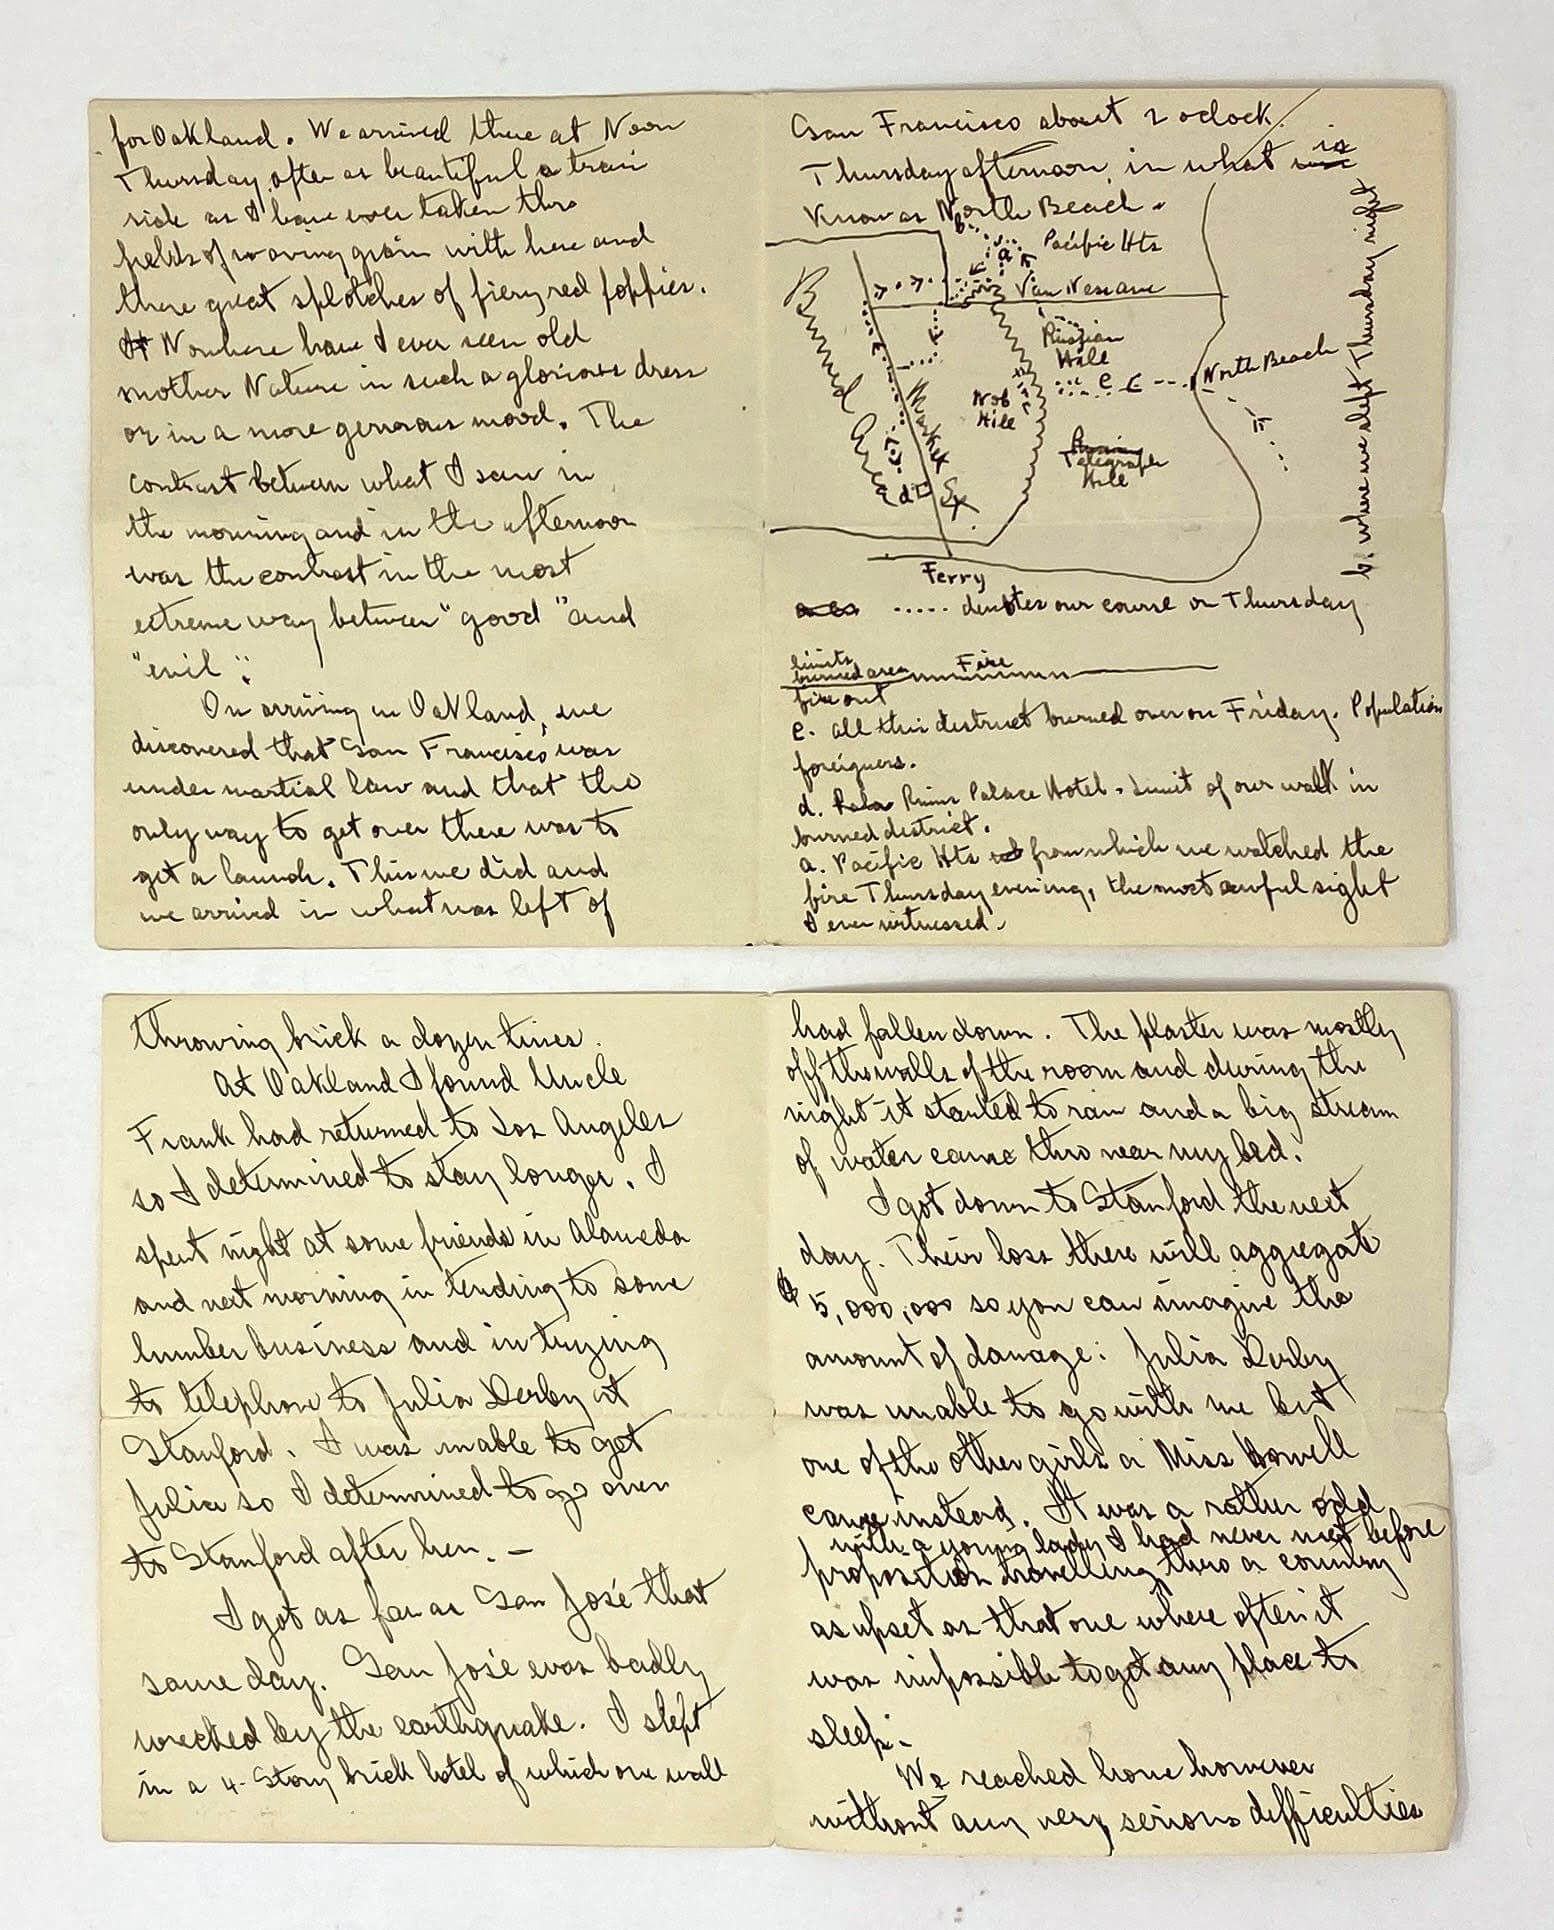 for Oakland. We arrived there at Noon
Thursday after as beautiful a train
ride as I have ever taken thro
fields of waving grain with here and
there great splotches of fiery red poppies.
Nowhere have I ever seen old
mother Nature in such a glorious dress
or in a more generous mood. The
contrast between what I saw in
the morning and in the afternoon
was the contrast in the most
extreme way between "good" and
"evil".
On arriving in Oakland, we
discovered that San Francisco was
under martial law and that the
only way to get over there was to
get a launch. This we did and
we arrived in what was left of
San Francisco about 2 oclock
Thursday afternoon, in what is
Known as North Beach.
b
a
Pacific Hts
Van Ness ave
Russian
Hill
Nob
Hill
e
North Beach
Telegraph
Hill
Burned Area
Market St.
d
Ferry
b. where we slept Thursday night
..... denotes our course on Thursday
limits
burned area
Fire
fire out
e. all this district burned over on Friday. Population
foreigners.
d. Ruins Palace Hotel. Limit of our walk in
burned district.
a. Pacific Hts from which we watched the
fire Thursday evening, the most awful sight
I ever witnessed.
throwing brick a dozen times.
At Oakland I found Uncle
Frank had returned to Los Angeles
so I determined to stay longer. I
spent night at some friends in Alameda
and next morning in tending to some
lumber business and in trying
to telephone to Julia Derby at
Stanford. I was unable to get
Julia so I determined to go over
to Stanford after her. —
I got as far as San José that
same day. San José was badly
wrecked by the earthquake. I slept
in a 4-Story brick hotel of which one wall
had fallen down. The plaster was mostly
off the walls of the room and during the
night it started to rain and a big stream
of water came thro near my bed.
I got down to Stanford the next
day. Their loss there will aggregate
$5,000,000 so you can imagine the
amount of damage. Julia Derby
was unable to go with me but
one of the other girls a Miss Howell
came instead. It was a rather odd
with a young lady I had never met before
proposition travelling thro a country
as upset as that one where often it
was impossible to get any place to
sleep.
We reached home however
without any very serious difficulties